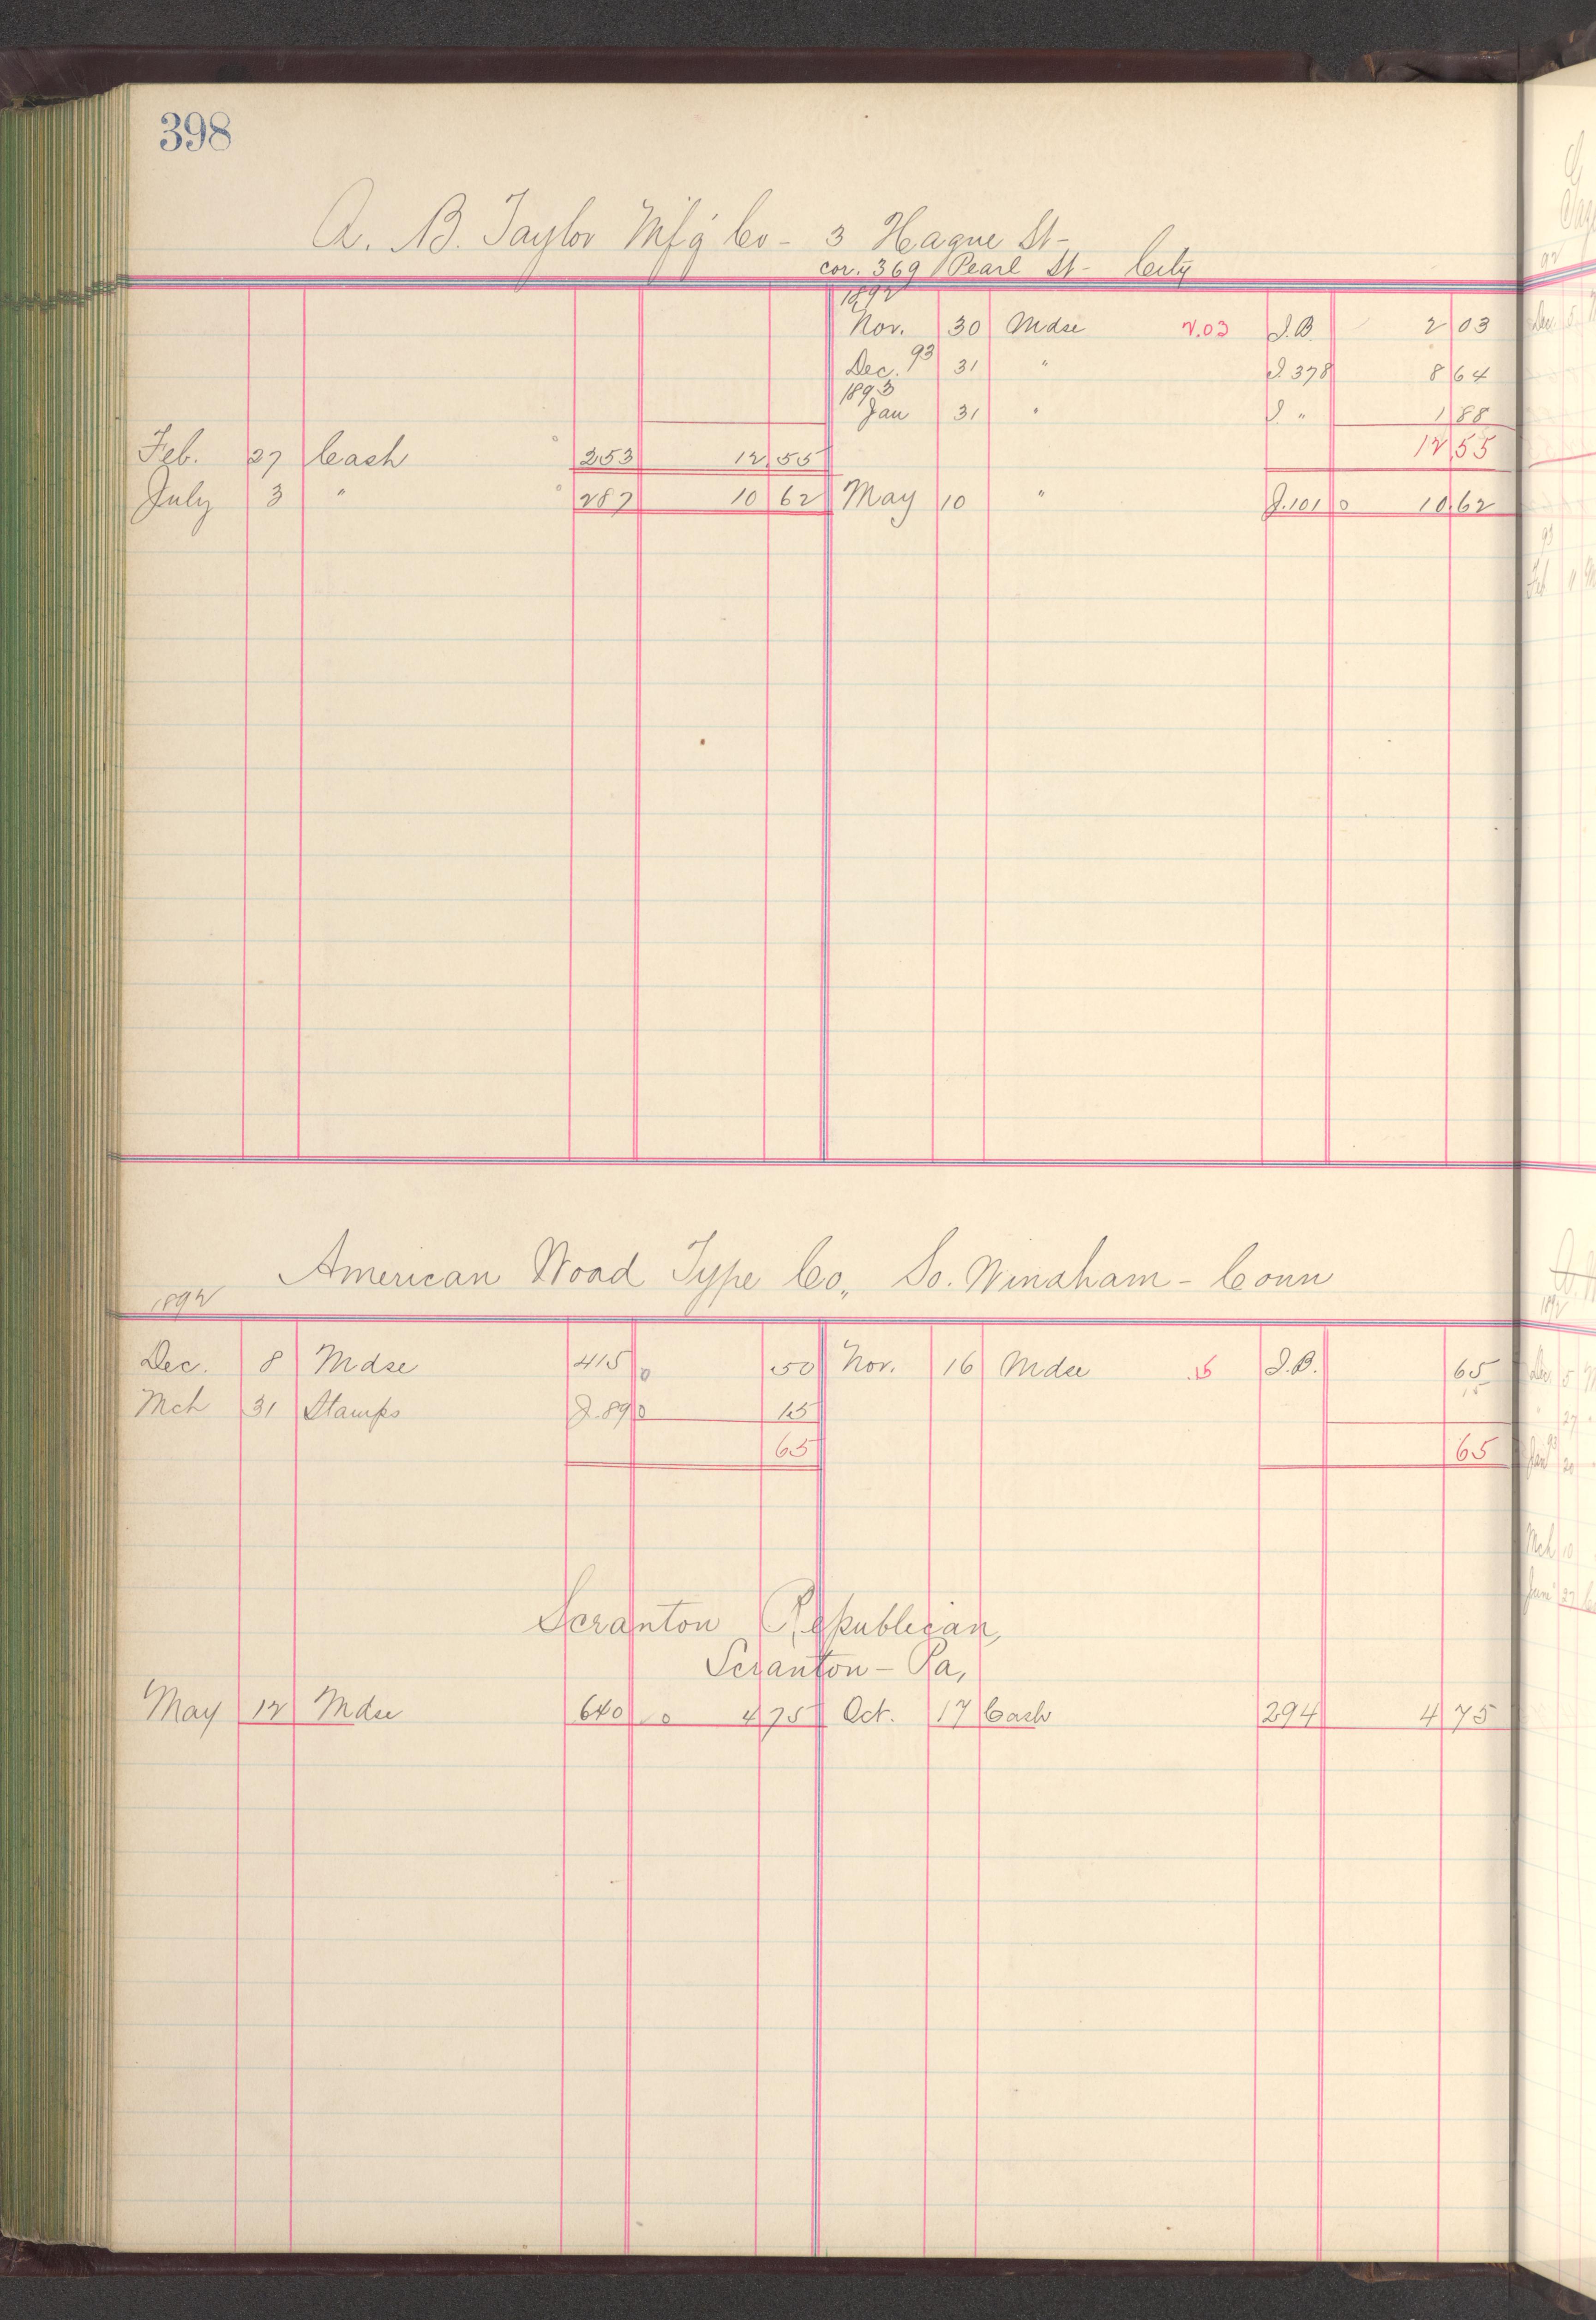 398
A. B. Taylor Mf'g Co - 3 Hague St -
cor. 369 Pearl St - City
1892
Nov. 30 Mdse 2.03 I.B. 2 03
Dec. 93 31 " I 378 8 64
1893
Jan 31 " I " 1 88
12 55
Feb. 27 Cash 253 12 55
July 3 " 287 10 62 May 10 " J.101 0 10 62
American Wood Type Co., So. Windham - Conn
1892
Dec. 8 Mdse 415 0 50 Nov. 16 Mdse I.B. 65
15
Mch 31 Stamps J. 89 0 15
65 65
Scranton Republican,
Scranton - Pa,
May 12 Mdse 640 0 4 75 Oct. 17 Cash 294 4 75